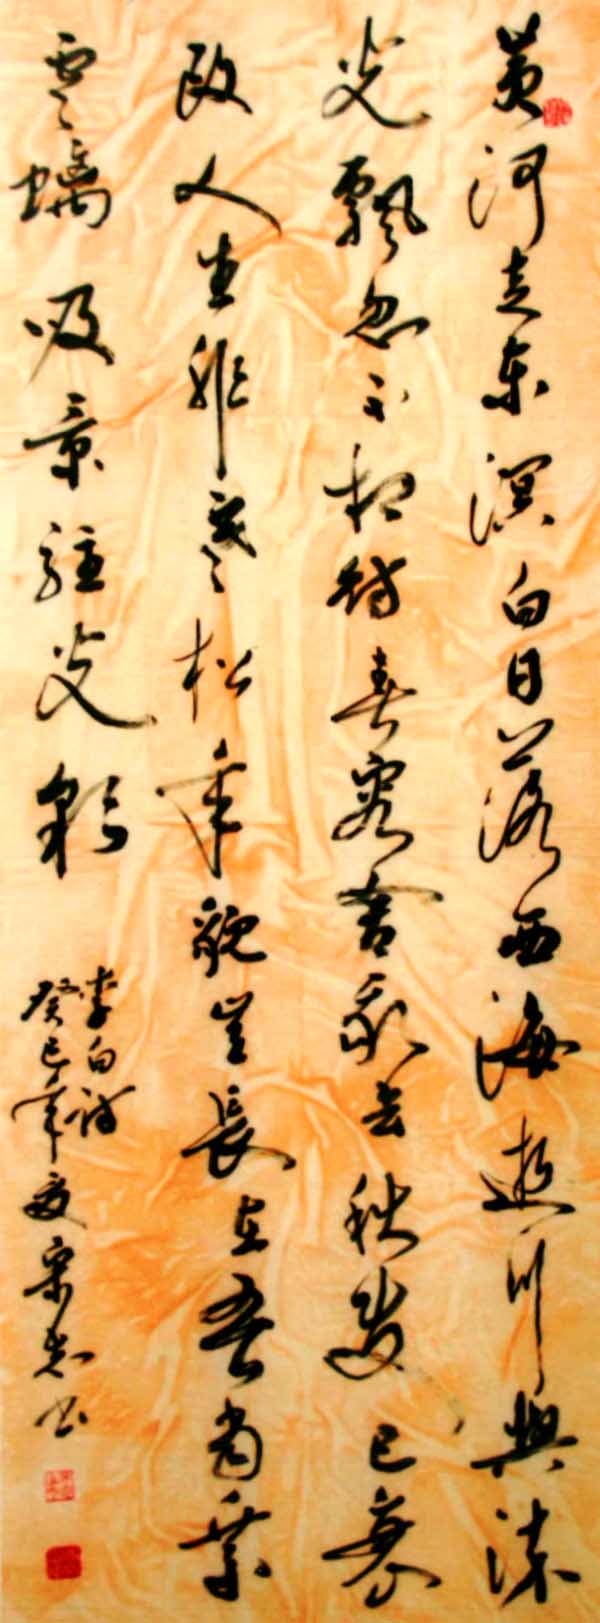 黄河走东溟白日落西海逝川与流
光飘忽不相待春容舍我去秋发已衰
改人生非寒松年貌岂长在吾当乘
云螭吸景驻光彩
李白诗
癸巳年夏宋志书